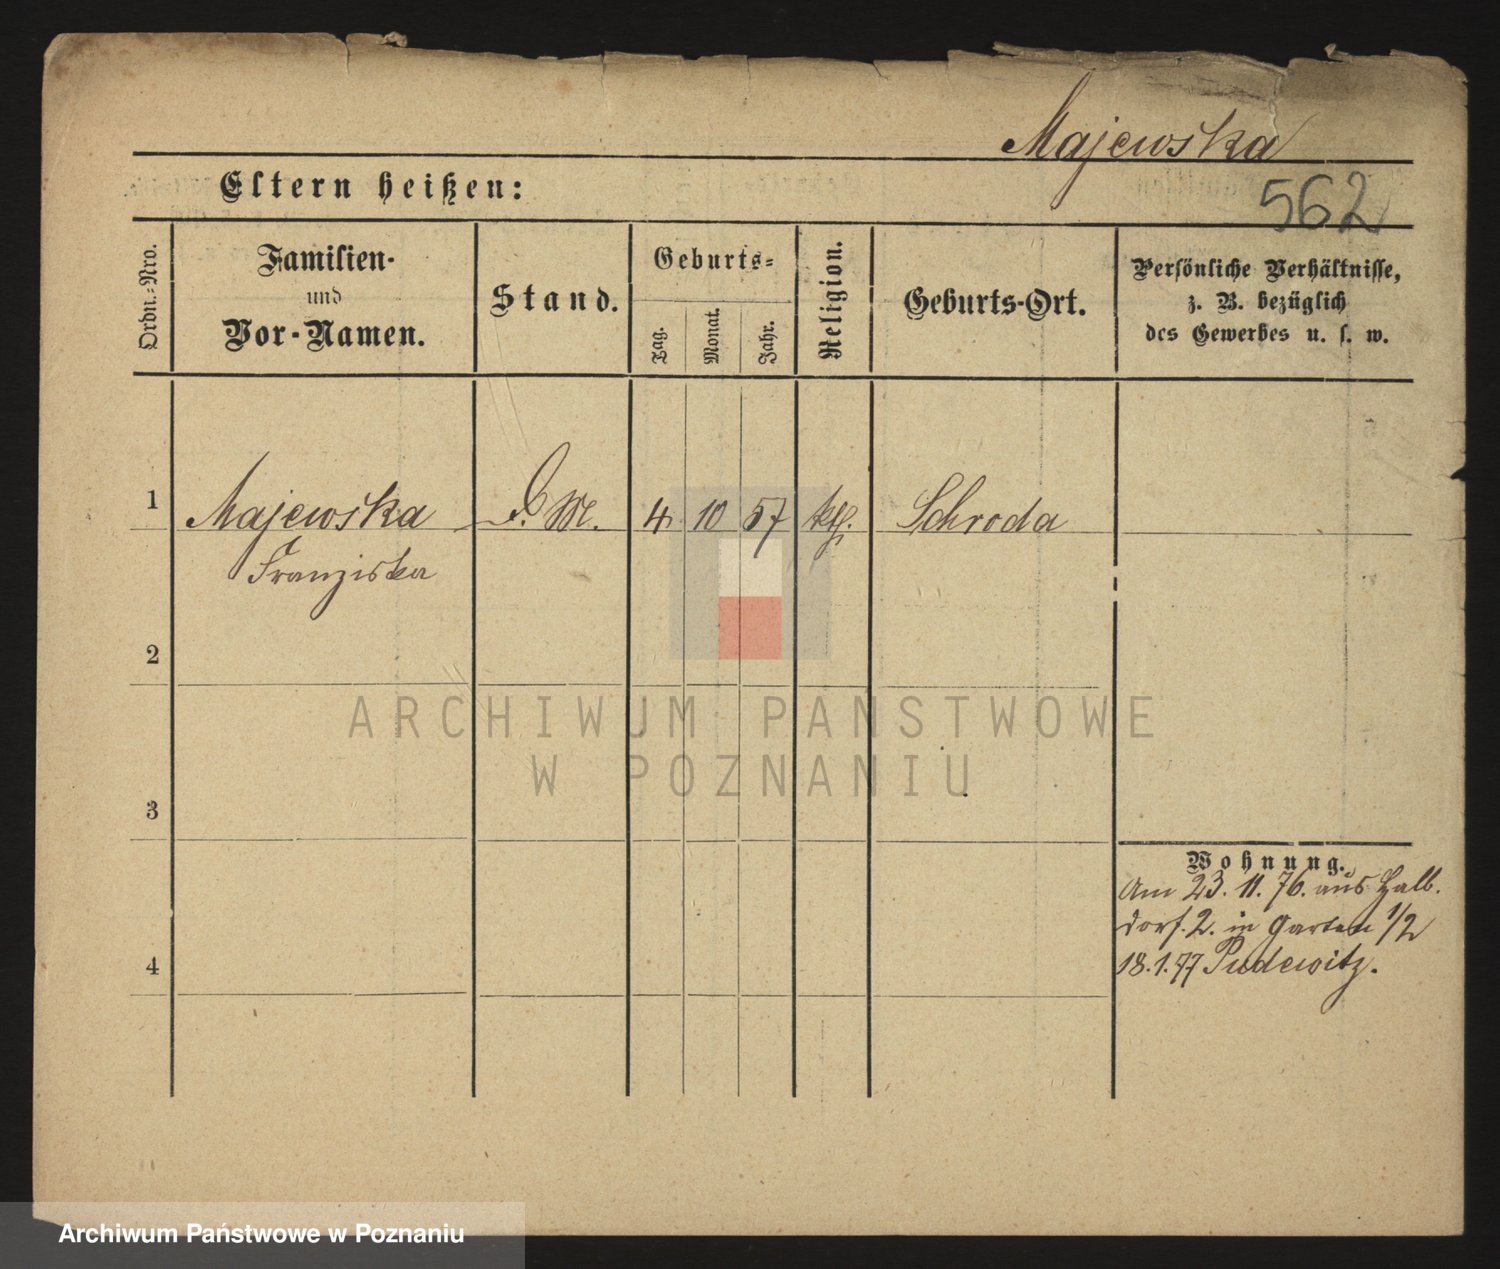 Majewska
Eltern heißen:
562
Ordn.-Nro.
Familien-
und
Vor-Namen.
Stand.
Geburts-
Tag.
Monat.
Jahr.
Religion.
Geburts-Ort.
Persönliche Verhältnisse,
z. B. bezüglich
des Gewerbes u. s. w.
1 Majewska D. M. 4 10 57 kth. Schroda
Franziska
2
3
4
Wohnung.
Am 23. 11. 76. aus Halb-
dorf. 2. in Garten 1/2
18. 1. 77 Pudewitz.
ARCHIWUM PAŃSTWOWE
W POZNANIU
Archiwum Państwowe w Poznaniu